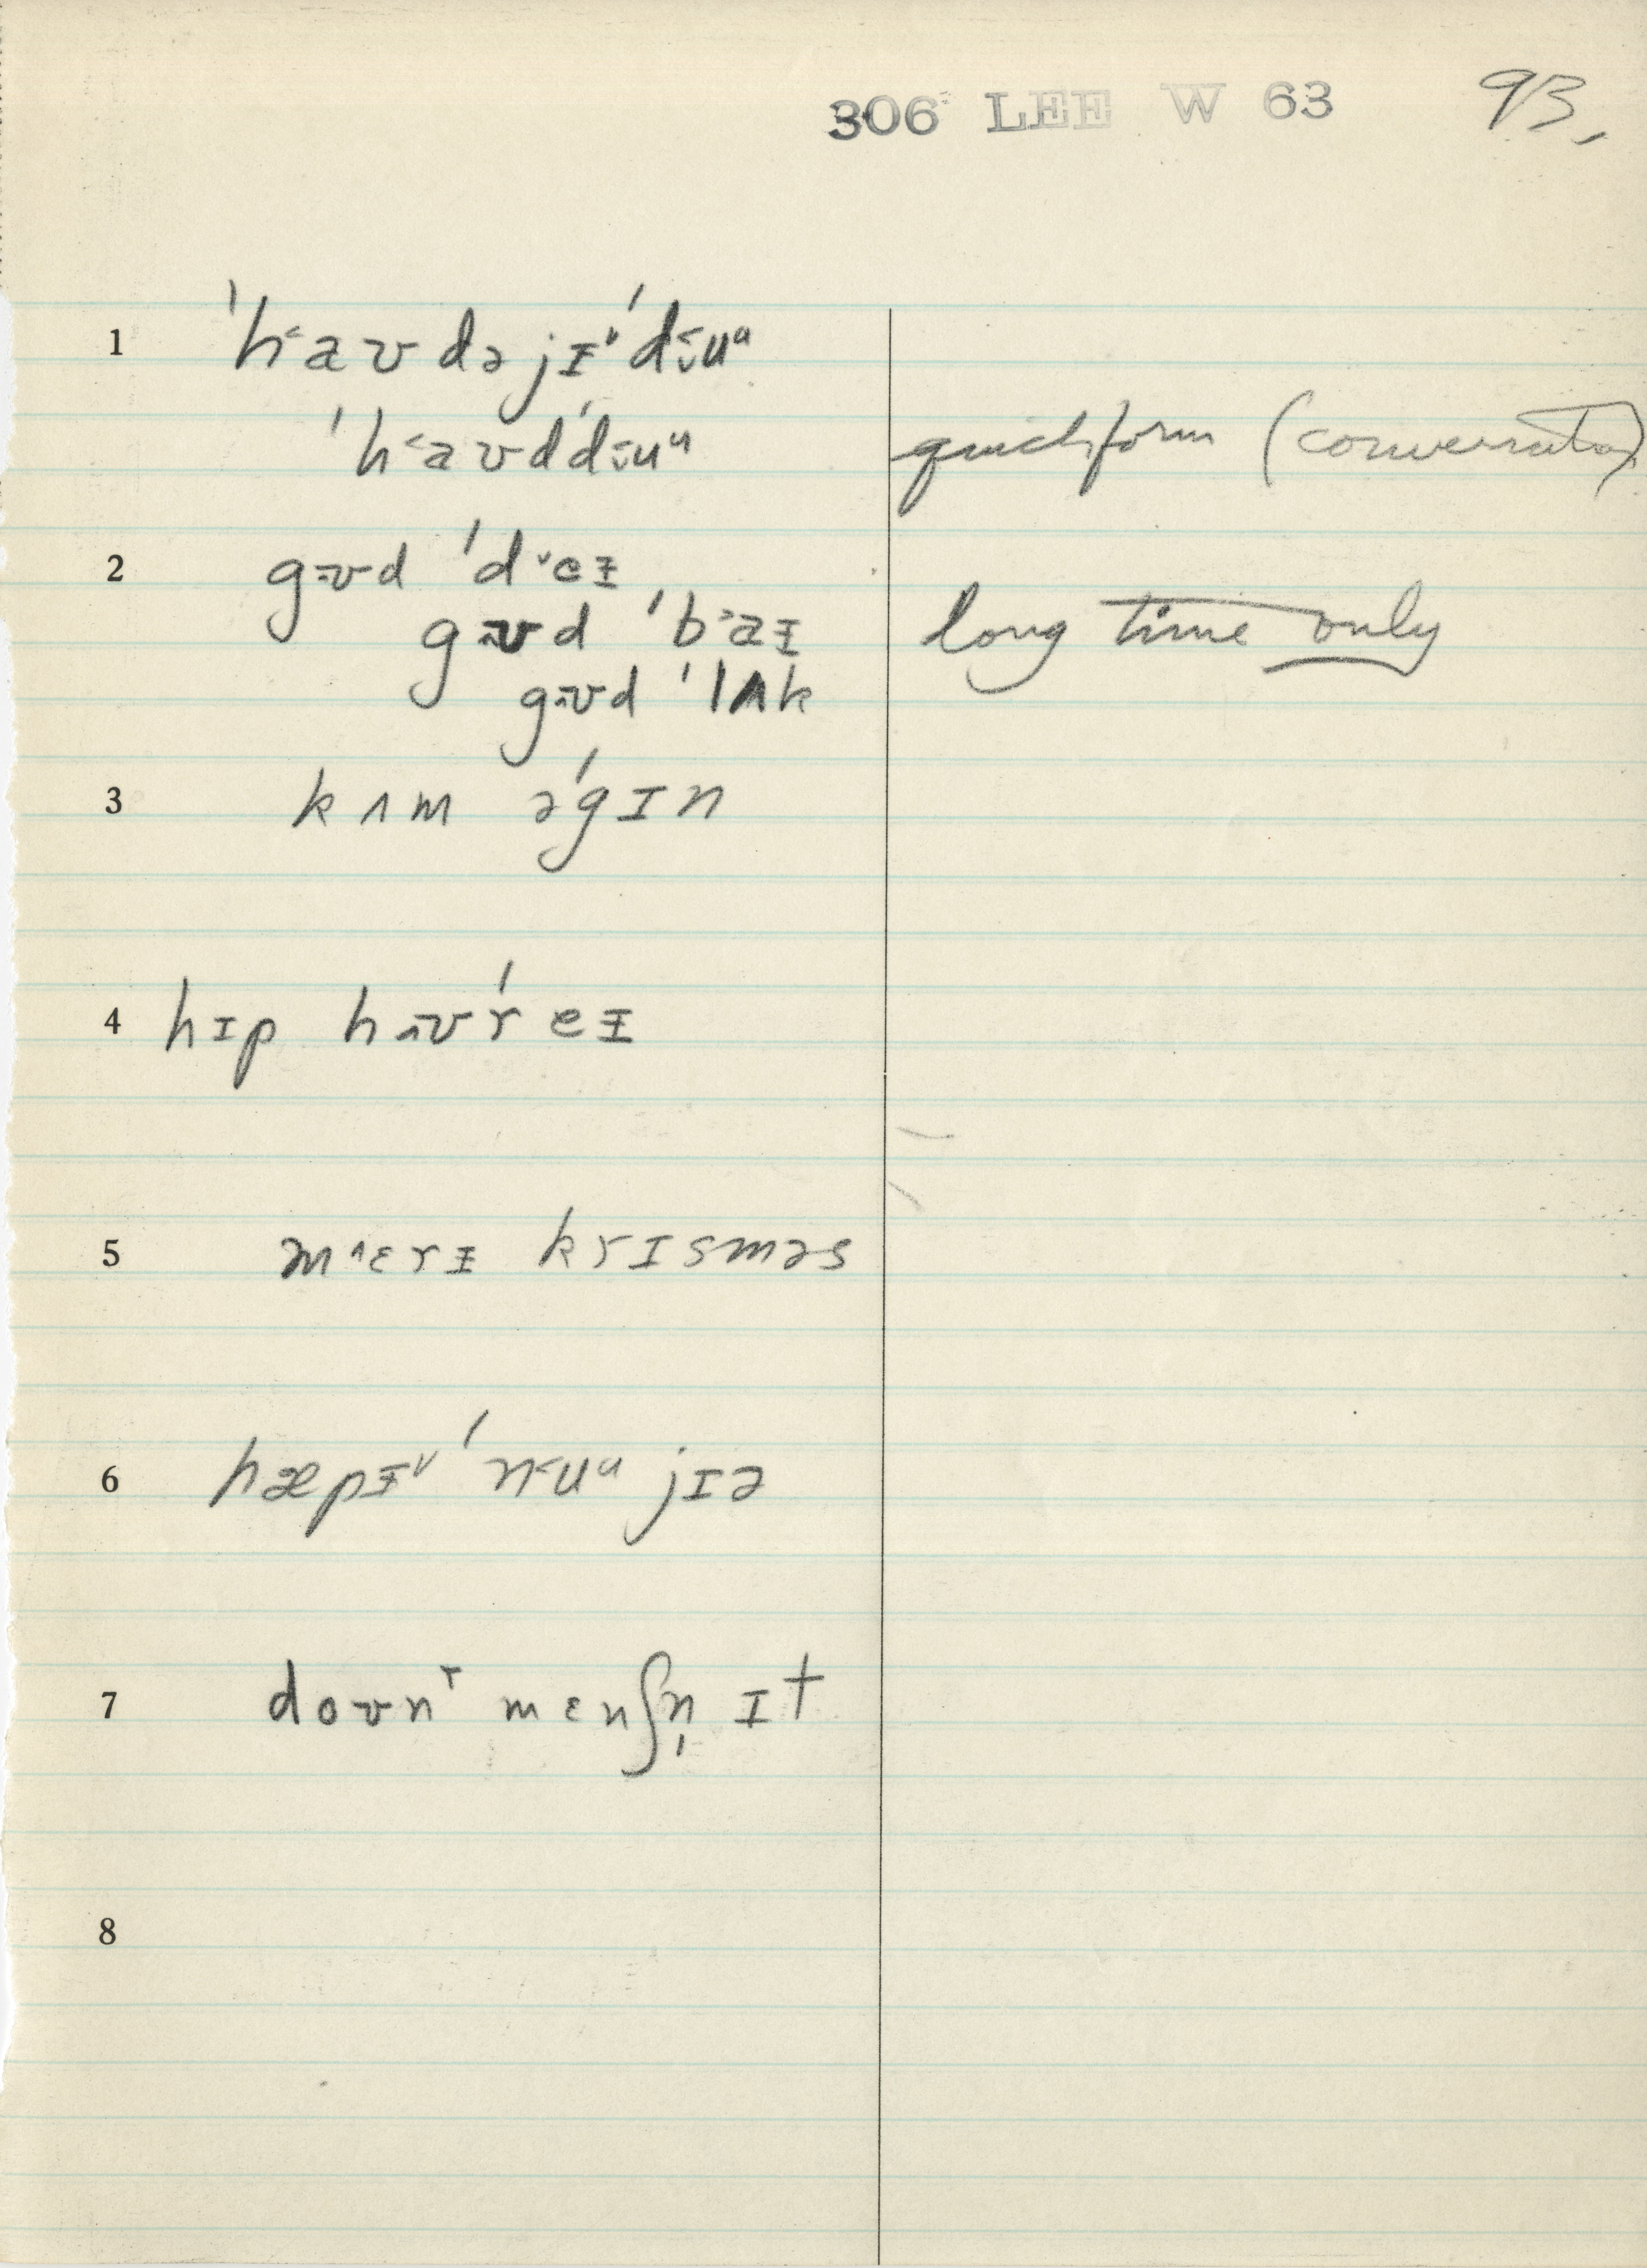 306 LEE W 63 93.
1 ˈh˂aʊ də jɪ̵ᵛ ˈd˂ᵥuᵘ
ˈh˂aʊdˈd˂ᵥuᵘ quick form (conversation)
2 gʊd ˈdᵛeɪ̵
gʊd ˈb˃aɪ̵ long time only
gʊd ˈlʌk
3 kʌm əˈgɪn
4 hɪp hʊˈreɪ̵
5 m˄ɛrɪ̵ krɪsməs
6 hæpɪ̵ᵛ ˈn˂uᵘ jɪə
7 doʊn˺ mɛnʃn̩ ɪt
8